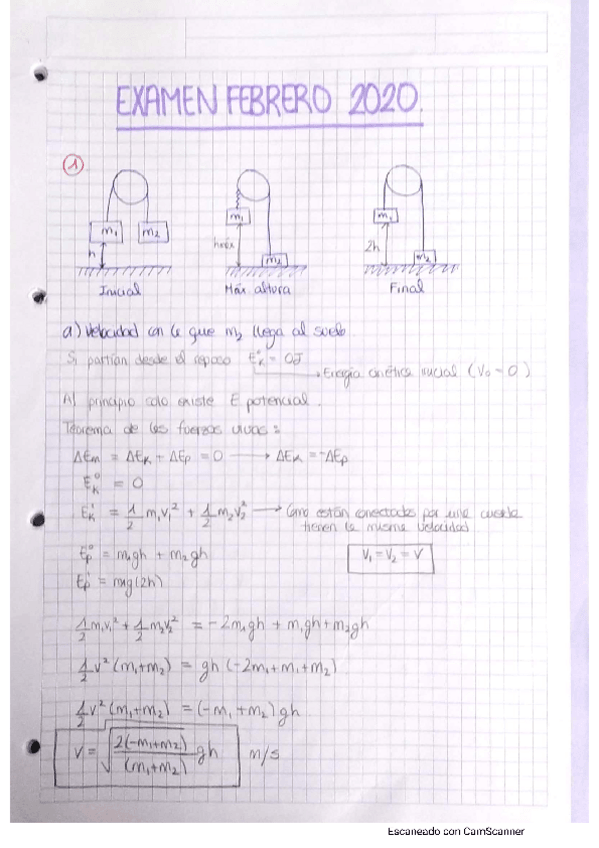 EXAMEN FEBRERO 2020.
1
m₁ m₂ m₁ m₂ m₁ m₂
h hmáx 2h
Inicial Máx altura Final
a) Velocidad con la que m₂ llega al suelo.
Si partían desde el reposo E°ₖ = 0J
Energía cinética inicial (V₀ = 0)
Al principio solo existe E potencial.
Teorema de las fuerzas vivas:
ΔEm = ΔEₖ + ΔEp = 0 → ΔEₖ = -ΔEp
E°ₖ = 0
E'ₖ = 1/2 m₁v₁² + 1/2 m₂v₂² → Como están conectadas por una cuerda
tienen la misma velocidad
E°p = m₁gh + m₂gh V₁ = V₂ = V
E'p = m₁g(2h)
1/2 m₁v₁² + 1/2 m₂v₂² = -2m₁gh + m₁gh + m₂gh
1/2 v² (m₁+m₂) = gh (-2m₁+m₁+m₂)
1/2 v² (m₁+m₂) = (-m₁ + m₂) gh
v = √(2(-m₁+m₂)/(m₁+m₂) gh) m/s
Escaneado con CamScanner